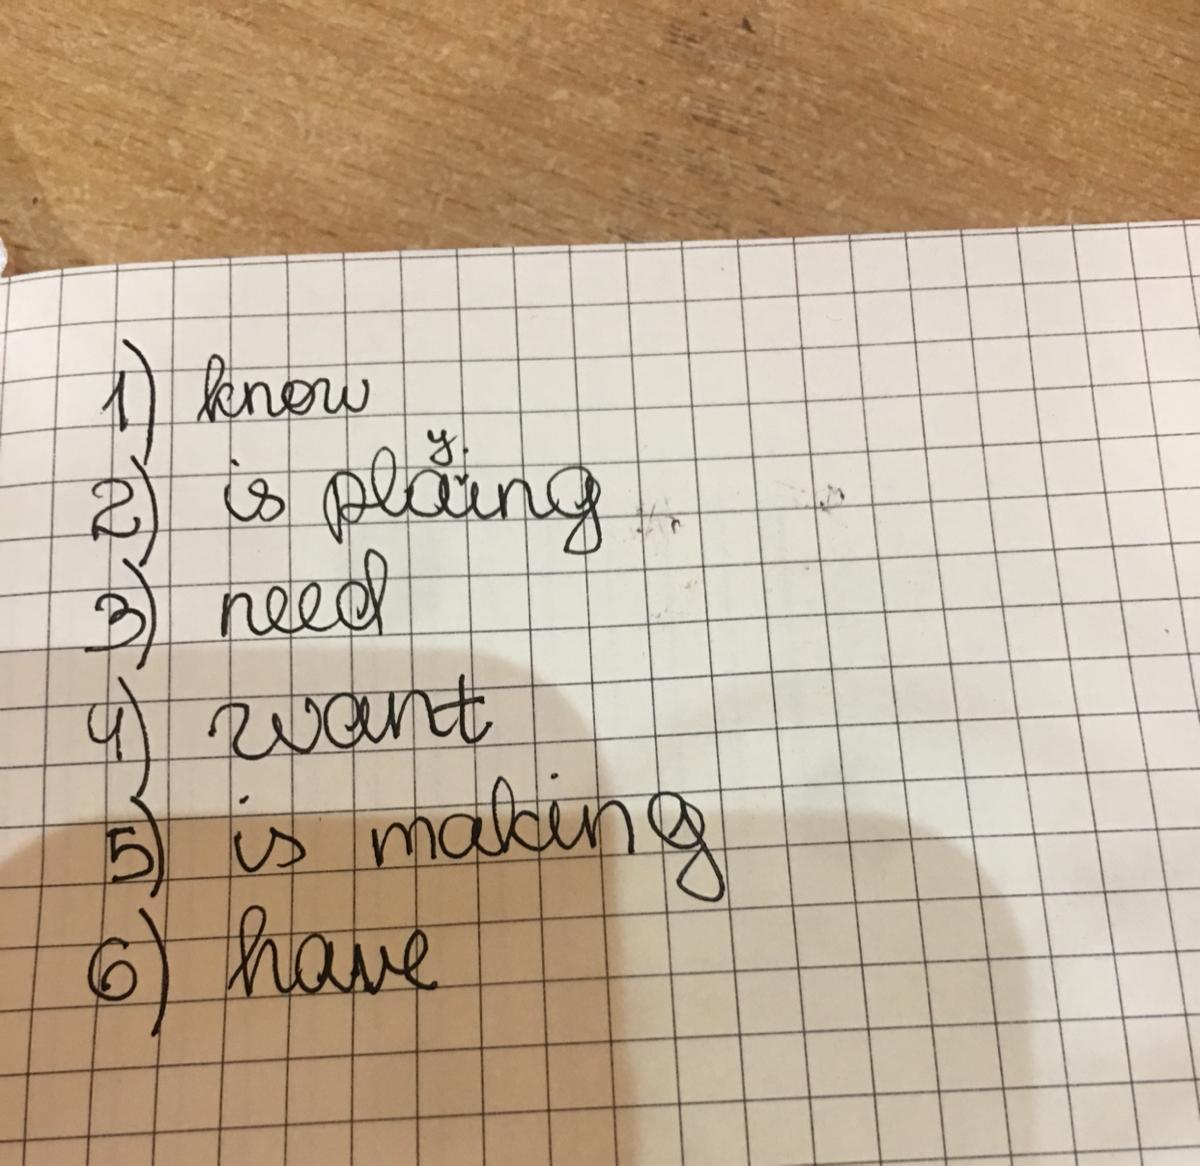 1) know
2) is playing
3) need
4) want
5) is making
6) have